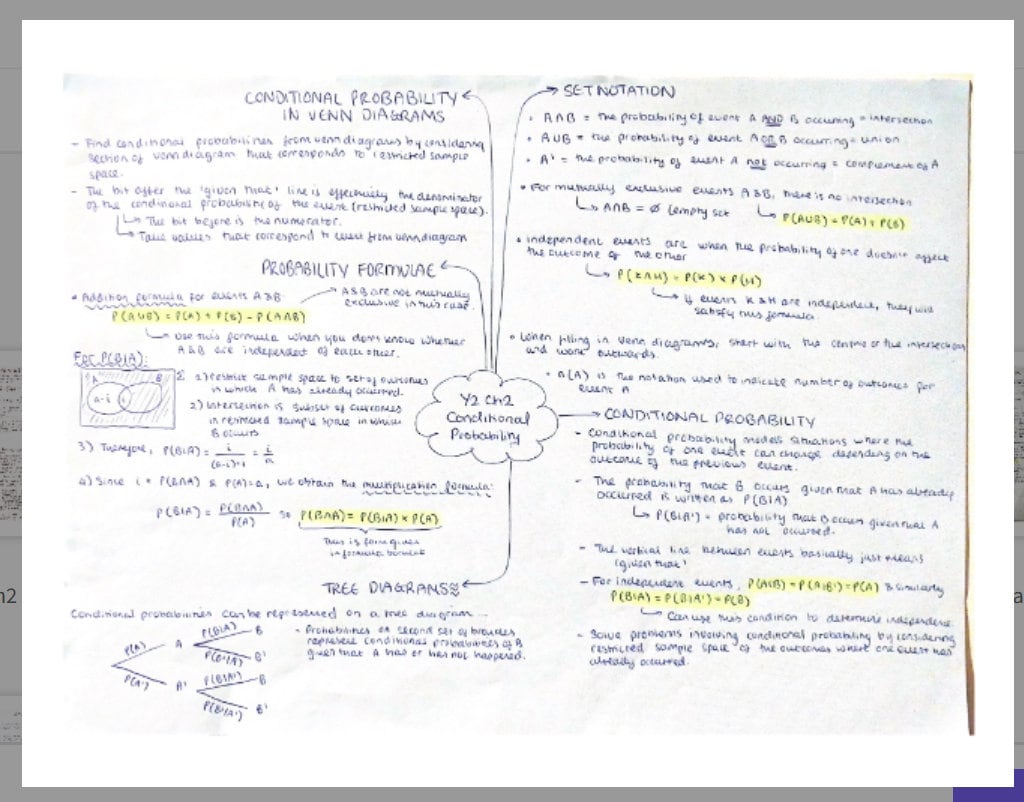 CONDITIONAL PROBABILITY
IN VENN DIAGRAMS
- Find conditional probabilities from venn diagrams by considering
section of venn diagram that corresponds to restricted sample
space.
- The bit after the 'given that' line is effectively the denominator
of the conditional probability of the event (restricted sample space).
The bit before is the numerator.
Take values that correspond to event from venn diagram
PROBABILITY FORMULAE
• Addition formula for events A & B
A & B are not mutually
exclusive in this case.
P(A∪B) = P(A) + P(B) - P(A∩B)
use this formula when you don't know whether
A & B are independent of each other.
For P(B|A):
A B
a-i i
1) restrict sample space to set of outcomes
in which A has already occurred.
2) Intersection is subset of outcomes
in restricted sample space in which
B occurs
3) Therefore, P(B|A) = i/((a-i)+i) = i/a
4) Since i = P(B∩A) & P(A)=a, we obtain the multiplication formula:
P(B|A) = P(B∩A)/P(A) so P(B∩A) = P(B|A) × P(A)
This is form given
in formula booklet
TREE DIAGRAMS
Conditional probabilities can be represented on a tree diagram...
P(A) A P(B|A) B
P(B'|A) B'
P(A') A' P(B|A') B
P(B'|A') B'
- Probabilities on second set of branches
represent conditional probabilities of B
given that A has or has not happened.
Y2 Ch2
Conditional
Probability
SET NOTATION
• A∩B = the probability of event A AND B occurring = intersection
• A∪B = the probability of event A OR B occurring = union
• A' = the probability of event A not occurring = complement of A
• For mutually exclusive events A & B, there is no intersection
A∩B = ∅ (empty set
P(A∪B) = P(A) + P(B)
• Independent events are when the probability of one doesn't affect
the outcome of the other
P(K∩H) = P(K) × P(H)
If events K & H are independent, they will
satisfy this formula.
• When filling in Venn diagrams, start with the centre or the intersection
and work outwards.
• n(A) is the notation used to indicate number of outcomes for
event A
CONDITIONAL PROBABILITY
- Conditional probability models situations where the
probability of one event can change depending on the
outcome of the previous event.
- The probability that B occurs given that A has already
occurred is written as P(B|A)
P(B|A') = probability that B occurs given that A
has not occurred.
- The vertical line between events basically just means
'given that'
- For independent events, P(A|B) = P(A|B') = P(A) & similarly
P(B|A) = P(B|A') = P(B)
Can use this condition to determine independence.
- Solve problems involving conditional probability by considering
restricted sample space of the outcomes where one event has
already occurred.